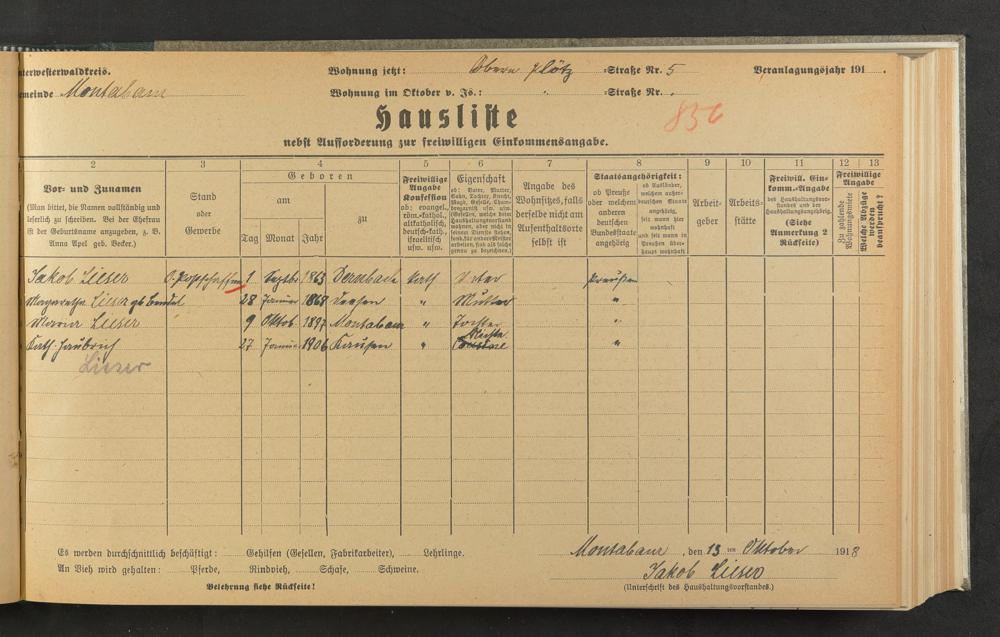 terwesterwaldkreis. Wohnung jetzt: Obern Plötz =Straße Nr. 5 Veranlagungsjahr 191 .
meinde Montabaur Wohnung im Oktober v. Js.: " =Straße Nr. "
Hausliste 856
nebst Aufforderung zur freiwilligen Einkommensangabe.
2 3 4 5 6 7 8 9 10 11 12 13
Vor- und Zunamen
(Man bittet, die Namen vollständig und
leserlich zu schreiben. Bei der Ehefrau
ist der Geburtsname anzugeben, z. B.
Anna Apel geb. Becker.)
Stand
oder
Gewerbe
Geboren
am
Tag Monat Jahr
zu
Freiwillige
Angabe
Konfession
ob: evangel.,
röm.-kathol.,
altkatholisch,
deutsch-kath.,
israelitisch
usw. usw.
Eigenschaft
ob: Vater, Mutter,
Sohn, Tochter, Knecht,
Magd, Geselle, Cham-
bregarnist usw. usw.
Angabe des
Wohnsitzes, falls
derselbe nicht am
Aufenthaltsorte
selbst ist
Staatsangehörigkeit:
ob Preuße
oder welchem
anderen
deutschen
Bundesstaate
angehörig
ob Ausländer,
welchem außer-
deutschen Staate
angehörig,
seit wann hier
wohnhaft und
seit wann in
Preußen über-
haupt wohnhaft
Arbeit-
geber
Arbeits-
stätte
Freiwill. Ein-
komm.-Angabe
des Haushaltungsvor-
standes und der
Haushaltungsangehörig.
(Siehe
Anmerkung 2
Rückseite)
Freiwillige
Angabe
Zu zahlende
Wohnungsmiete
Welche Abzüge
werden
beansprucht?
Jakob Lieser 1 Septbr 1863 Dernbach kath Vater Preußen
Margaretha Lieser gb Bendel 28 Januar 1868 " Mutter "
Maria Lieser 9 Oktob. 1897 Montabaur " Tochter "
Kath Haubrich 27 Januar 1906 Kausen " "
Lieser
Es werden durchschnittlich beschäftigt: Gehilfen (Gesellen, Fabrikarbeiter), Lehrlinge.
An Vieh wird gehalten: Pferde, Rindvieh, Schafe, Schweine.
Belehrung siehe Rückseite!
Montabaur, den 13 ten Oktober 1918
Jakob Lieser
(Unterschrift des Haushaltungsvorstandes.)